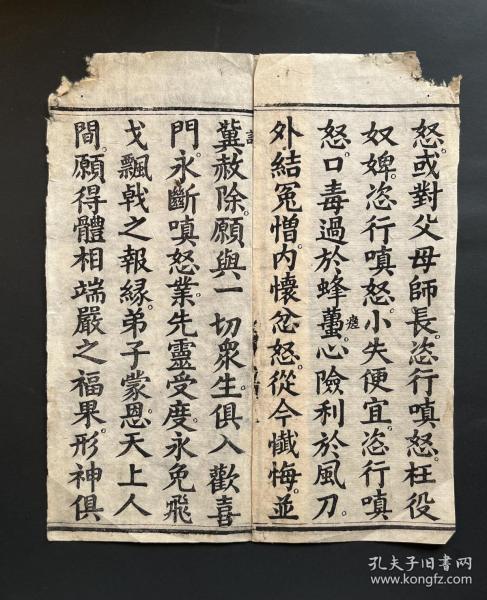 怒。或對父母師長。恣行嗔怒。枉役
奴婢。恣行嗔怒。小失便宜。恣行嗔
怒。口毒過於蜂蠆。心險利於風刀。
外結冤憎。内懷忿怒。從今懴悔。並
冀赦除。願與一切衆生。俱入歡喜
門。永斷嗔怒業。先靈受度。永免飛
戈飄戟之報緣。弟子蒙恩。天上人
間。願得體相端嚴之福果。形神俱
孔夫子旧书网
www.kongfz.com